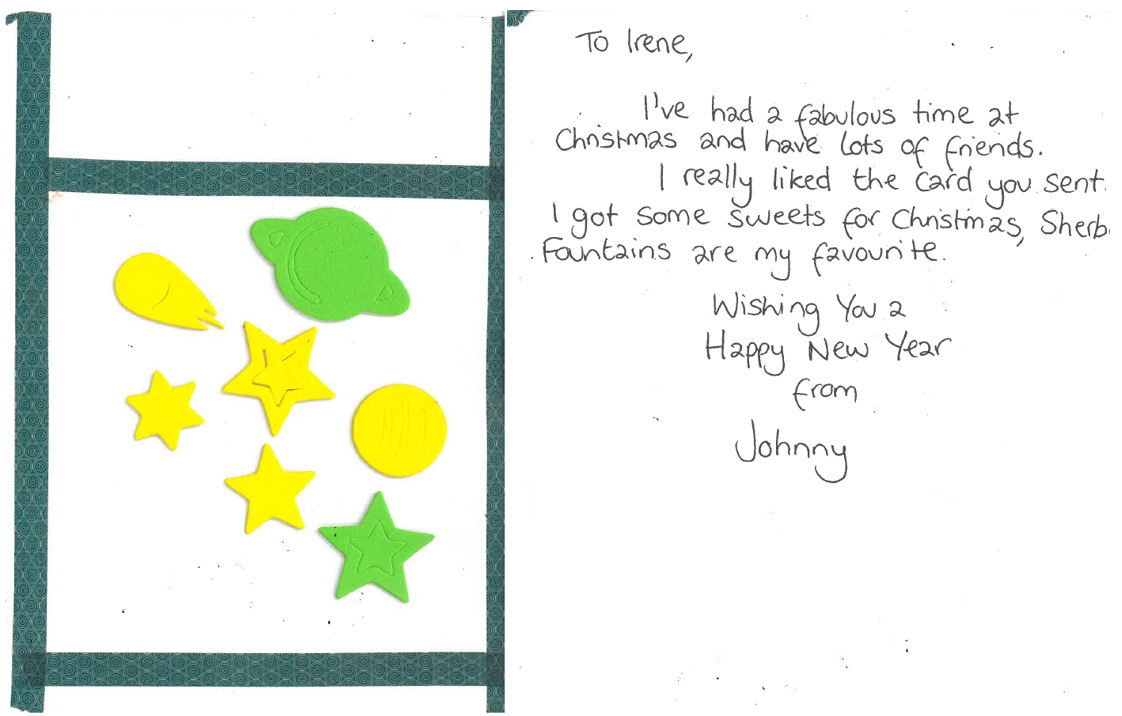 To Irene,
I've had a fabulous time at
Christmas and have lots of friends.
I really liked the card you sent.
I got some sweets for Christmas, Sherb
Fountains are my favourite.
Wishing You a
Happy New Year
from
Johnny